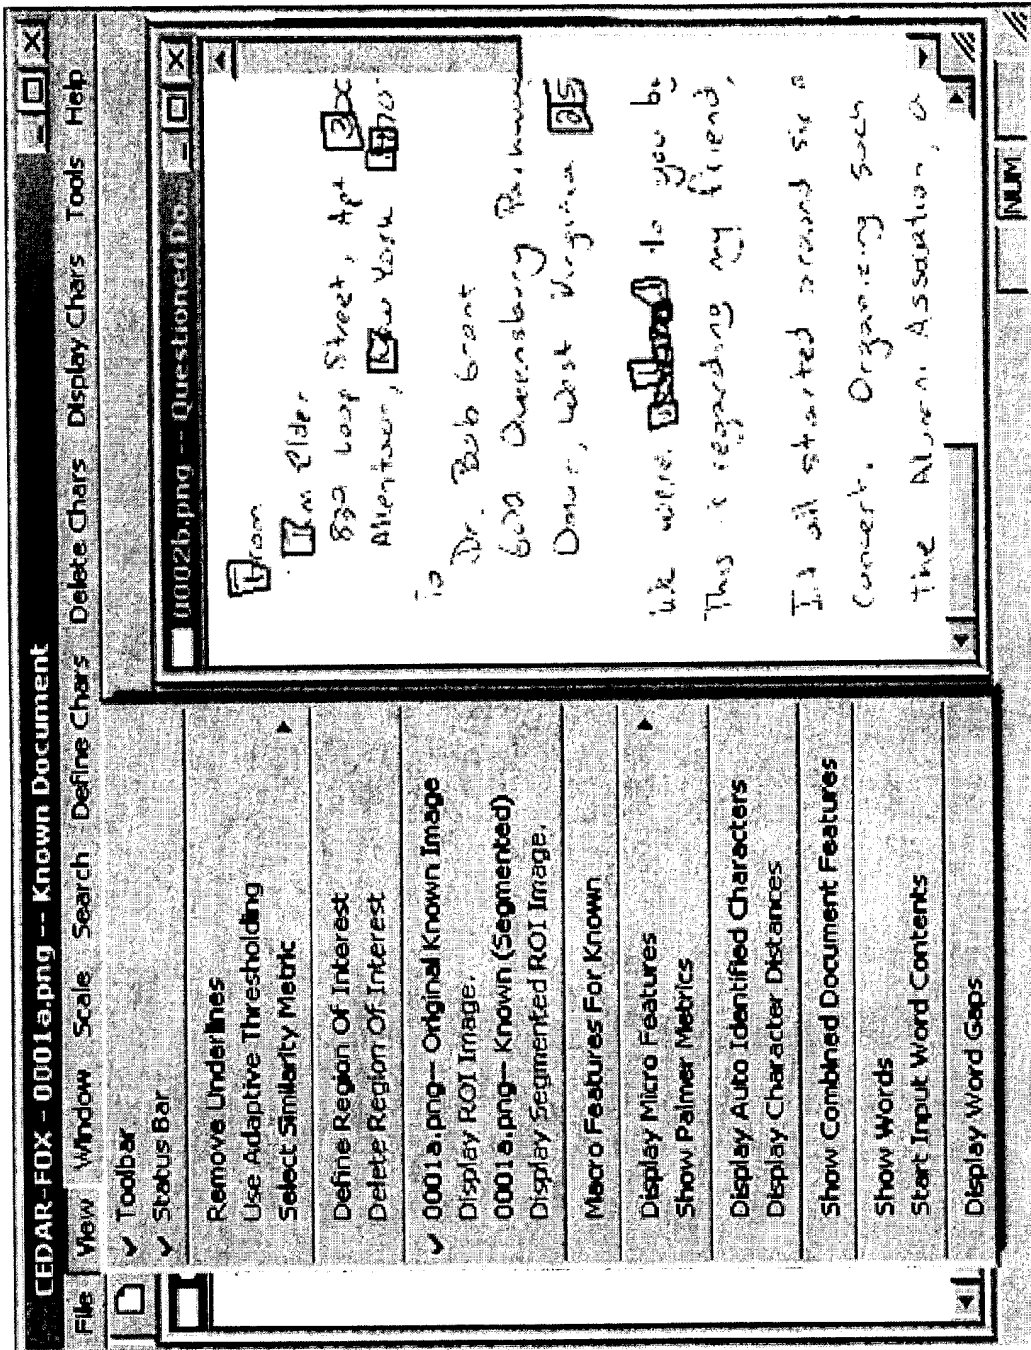 CEDAR-FOX - 0001a.png -- Known Document
File View Window Scale Search Define Chars Delete Chars Display Chars Tools Help
✓ Toolbar
✓ Status Bar
Remove Underlines
Use Adaptive Thresholding
Select Similarity Metric
Define Region Of Interest
Delete Region Of Interest
✓ 0001a.png-- Original Known Image
Display ROI Image.
0001a.png-- Known (Segmented)
Display Segmented ROI Image.
Macro Features For Known
Display Micro Features
Show Palmer Metrics
Display Auto Identified Characters
Display Character Distances
Show Combined Document Features
Show Words
Start Input Word Contents
Display Word Gaps
0002b.png -- Questioned Do...
From
Jim Elder
829 Loop Street, Apt 3
Allentown, New York
To
Dr. Bob Grant
602 Queensbury Parkway
Omar, West Virginia 25
We were to you by
This is regarding my friend,
It all started around six
Concert. Organizing such
The Alumni Association, a
NUM